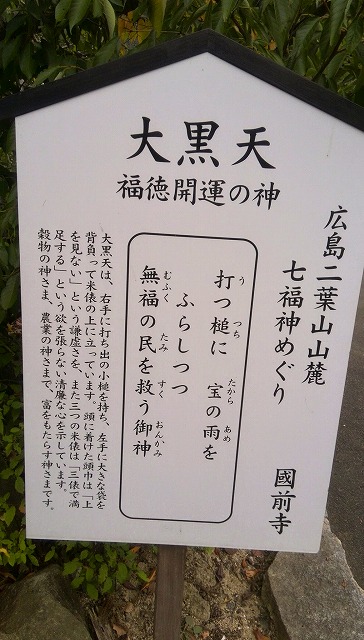 大黒天
福徳開運の神
広島二葉山山麓
七福神めぐり
國前寺
打つ槌に 宝の雨を
う つち たから あめ
ふらしつつ
無福の民を救う御神
むふく たみ すく おんかみ
大黒天は、右手に打ち出の小槌を持ち、左手に大きな袋を
背負って米俵の上に立っています。頭に着けた頭巾は「上
を見ない」という謙虚さを、また三つの米俵は「三俵で満
足する」という欲を張らない清廉な心を示しています。
穀物の神さま、農業の神さまで、富をもたらす神さまです。